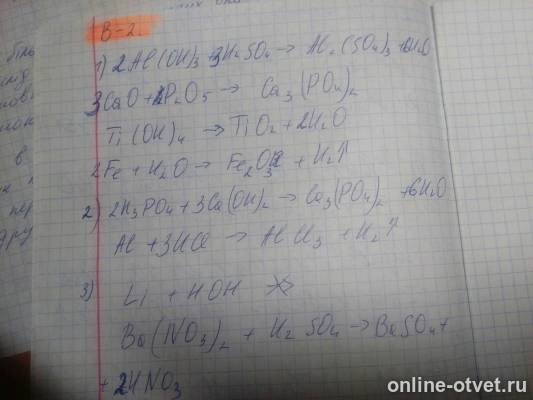 В-2.
1) 2Al(OH)3 + 3H2SO4 → Al2(SO4)3 + 6H2O
3CaO + P2O5 → Ca3(PO4)2
Ti(OH)4 → TiO2 + 2H2O
2Fe + H2O → Fe2O3 + H2↑
2) 2H3PO4 + 3Ca(OH)2 → Ca3(PO4)2 + 6H2O
Al + 3HCl → AlCl3 + H2↑
3) Li + HOH
Ba(NO3)2 + H2SO4 → BaSO4 +
+ 2HNO3
online-otvet.ru